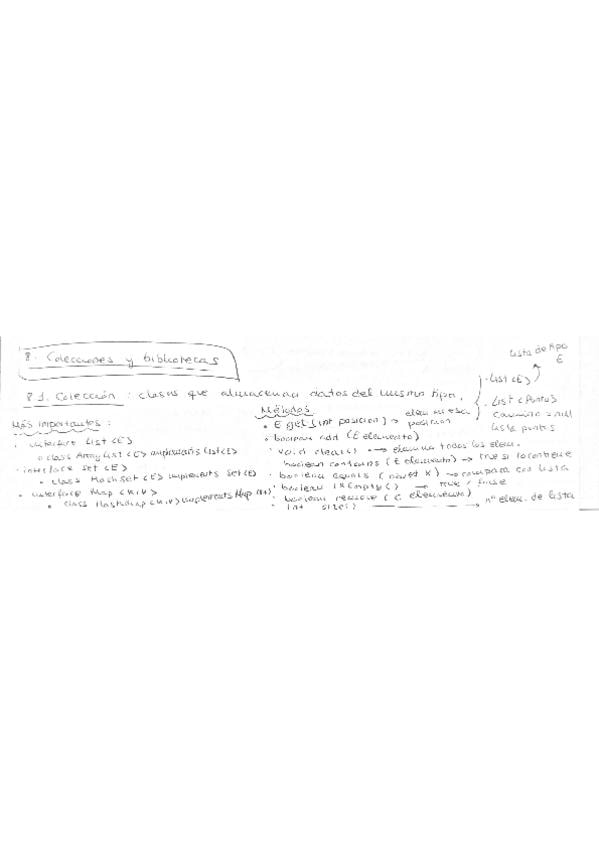 8. Colecciones y bibliotecas
8.1. Colección : clases que almacenan datos del mismo tipo.
Lista de tipo
E
· List <E>
· List <Punto>
Lista puntos
Más importantes :
· interface List <E>
o class ArrayList <E> implements List <E>
· interface Set <E>
• class HashSet <E> implements Set <E>
• interface Map <K,V>
• class HashMap <K,V> implements Map <K,V>
Métodos
• E get (int posicion) → elem en esa posición
• boolean add (E elemento)
• void clear() → elimina todos los elem.
boolean contains (E elemento) → true si lo contiene
• boolean equals (Object x) → compara con lista
• boolean isEmpty () → true / false
• boolean remove (E elemento)
• int size() → nº elem. de lista